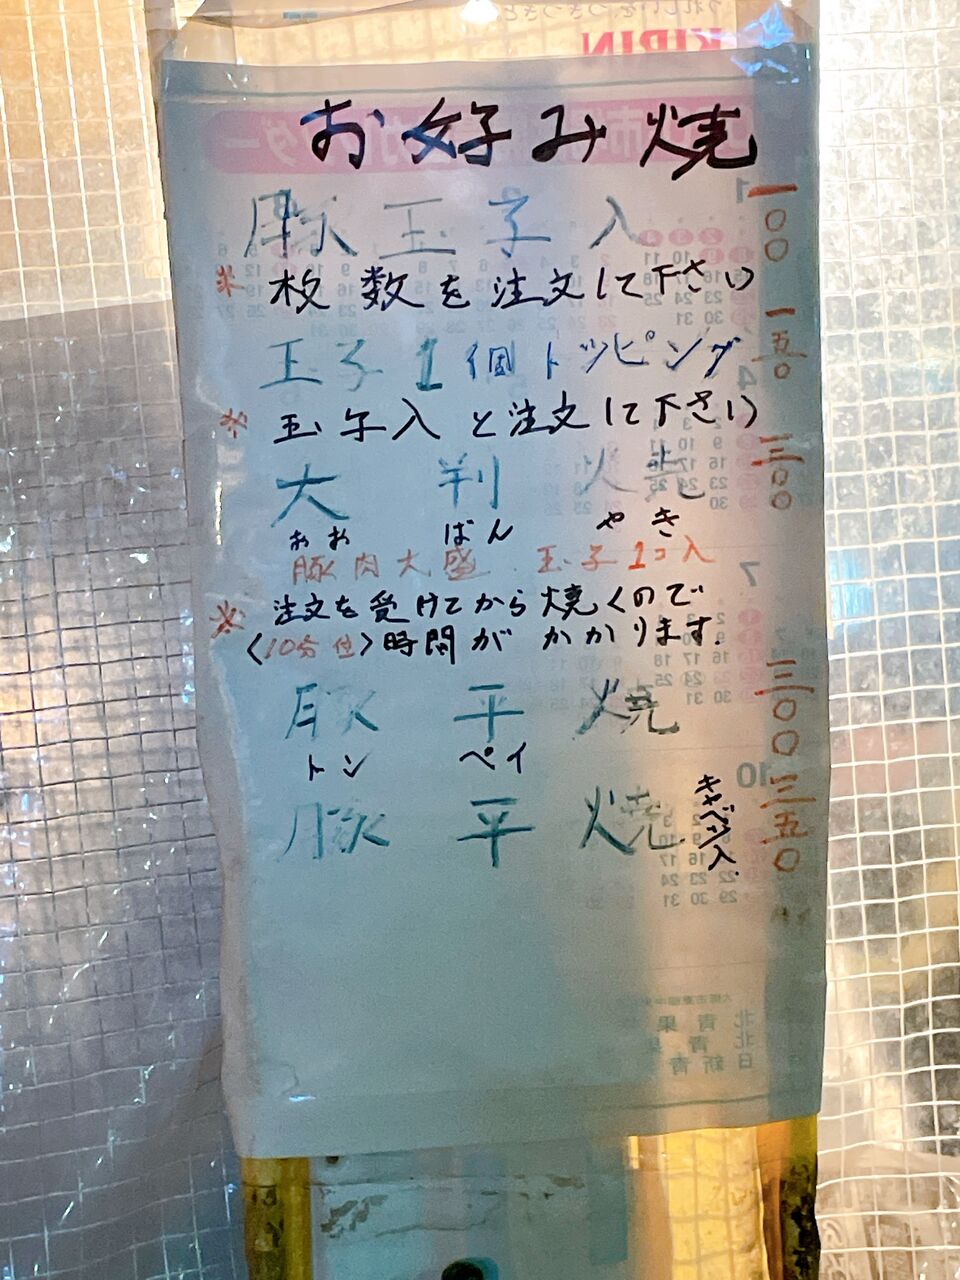 KIRIN
お好み焼
豚玉子入 一〇〇
※枚数を注文して下さい
玉子1個トッピング 一五〇
※玉子入と注文して下さい
大判焼 三〇〇
おおばんやき
豚肉大盛 玉子1コ入
※注文を受けてから焼くので
〈10分位〉時間がかかります.
豚平焼 三〇〇
トンペイ
豚平焼 キャベツ入. 三五〇